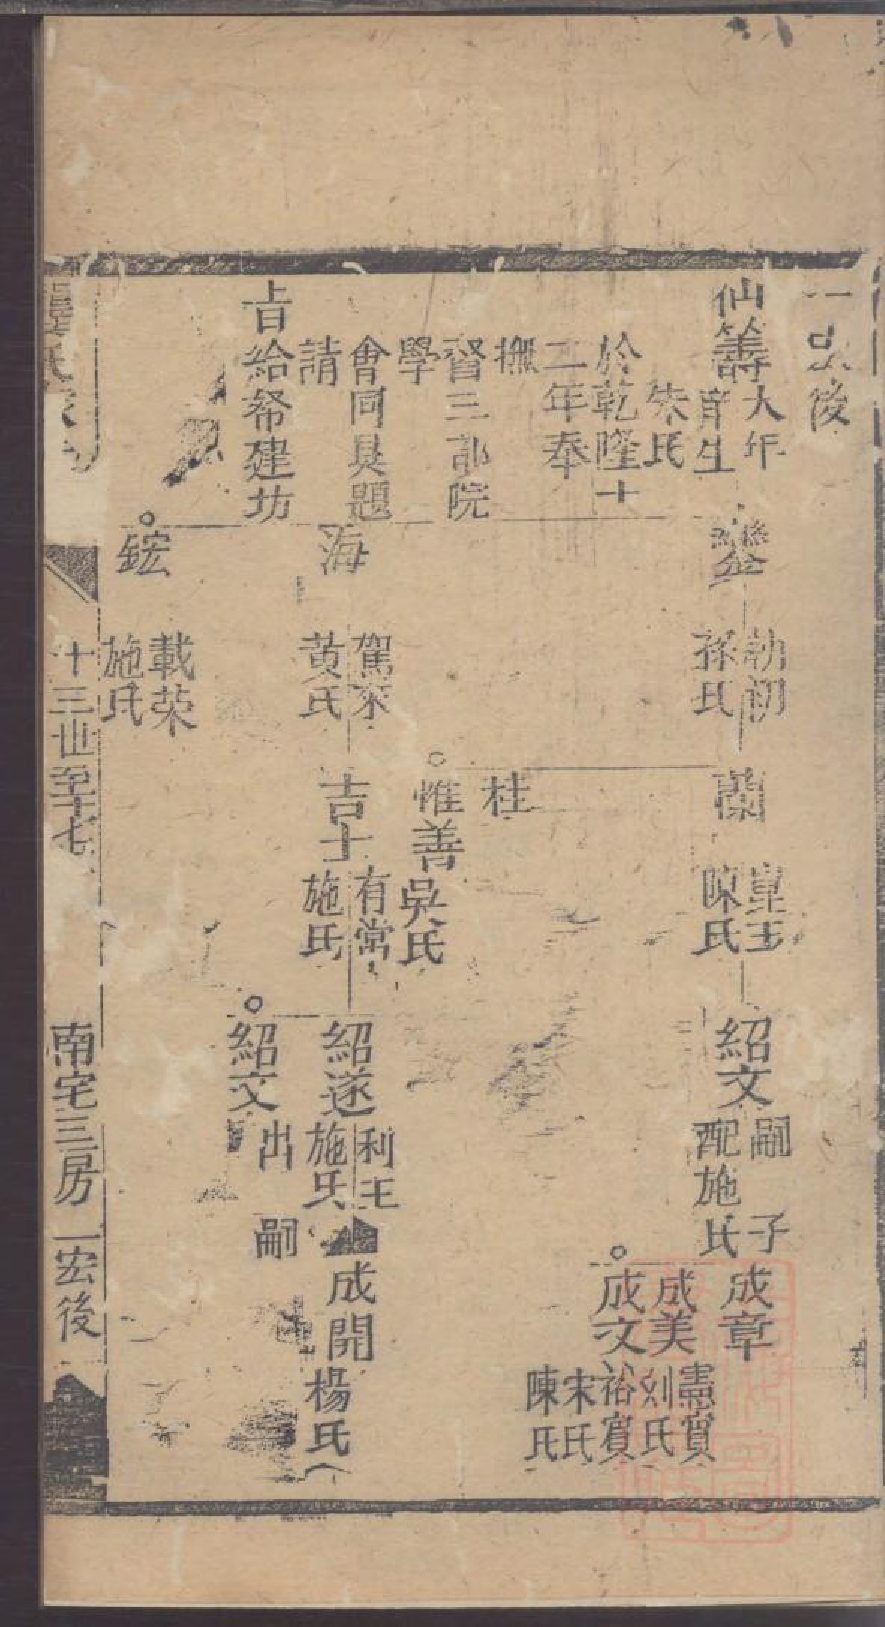 後
仙籌
大年
庠生
朱氏
於乾隆十
二年奉
撫
督三部院
學
會同具題
請
旨給帑建坊
鑾
勷初
孫氏
海
駕來
黃氏
鋐
載荣
施氏
蘭
陳氏
桂
惟善
吳氏
吉士
有常
施氏
紹文
嗣子
配施氏
紹遂
利王
施氏
紹文
出嗣
成章
成美
憲賓
刘氏
成文
裕賓
宋氏
陳氏
成開
楊氏
龔氏家
十三世至十七
南宅三房一宏後